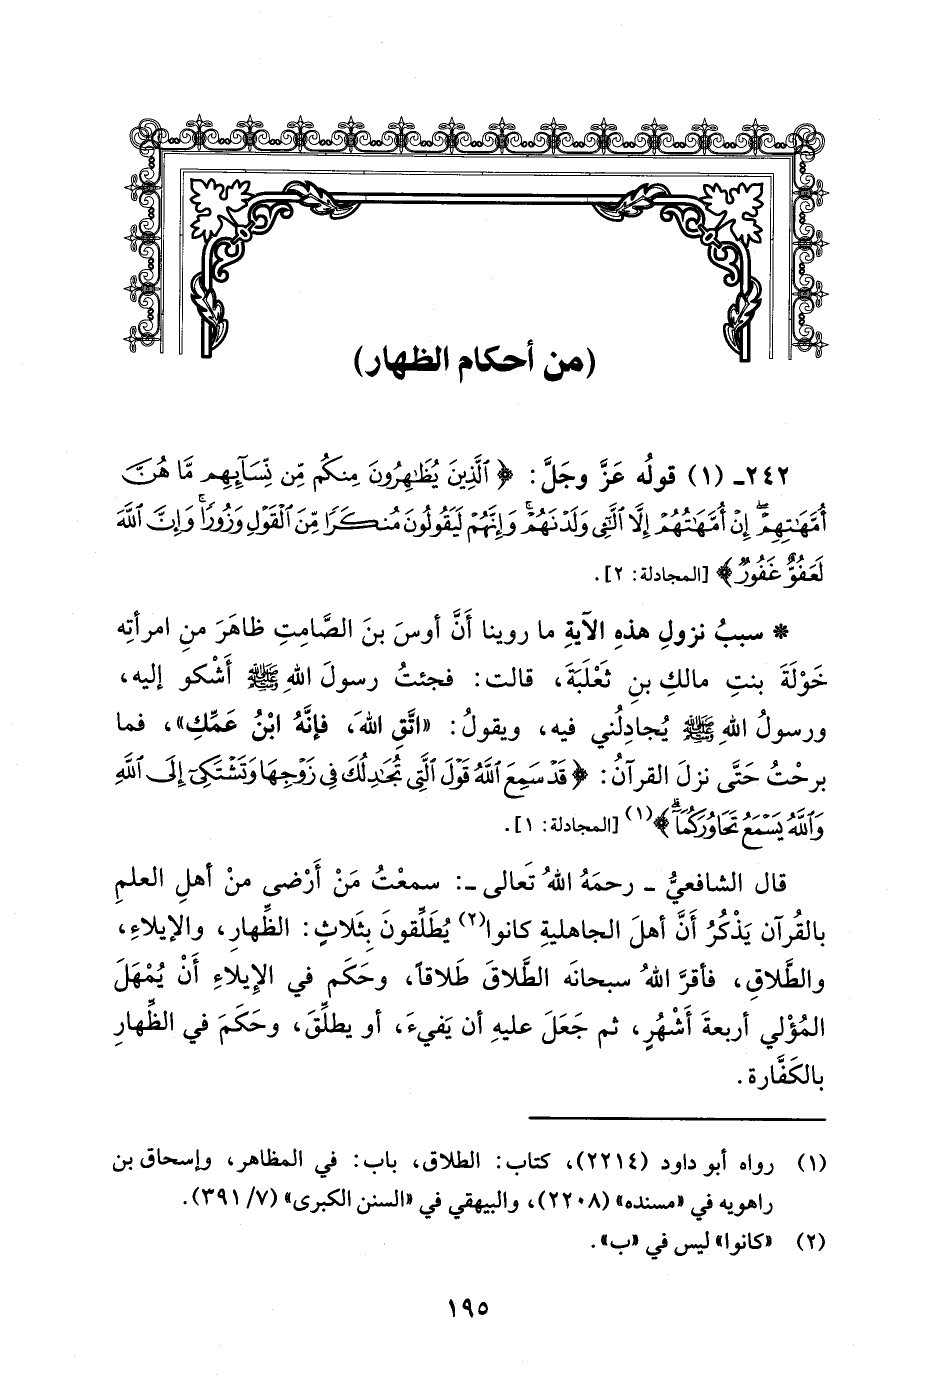 (من أحكام الظهار)
٢٤٢ـ (١) قولُه عَزَّ وجَلَّ: ﴿ ٱلَّذِينَ يُظَٰهِرُونَ مِنكُم مِّن نِّسَآئِهِم مَّا هُنَّ
أُمَّهَٰتِهِمْ ۖ إِنْ أُمَّهَٰتُهُمْ إِلَّا ٱلَّٰٓـِٔى وَلَدْنَهُمْ ۚ وَإِنَّهُمْ لَيَقُولُونَ مُنكَرًا مِّنَ ٱلْقَوْلِ وَزُورًا ۚ وَإِنَّ ٱللَّهَ
لَعَفُوٌّ غَفُورٌ ﴾ [المجادلة: ٢].
* سببُ نزولِ هذهِ الآيةِ ما روينا أَنَّ أوسَ بنَ الصَّامِتِ ظاهَرَ منِ امرأتِه
خَوْلَةَ بنتِ مالكِ بنِ ثَعْلَبَةَ، قالت: فجئتُ رسولَ اللهِ ﷺ أَشْكو إليه،
ورسولُ اللهِ ﷺ يُجادِلُني فيه، ويقولُ: «اتَّقِ اللهَ، فإنَّهُ ابْنُ عَمِّكِ»، فما
برحْتُ حَتَّى نزلَ القرآنُ: ﴿ قَدْ سَمِعَ ٱللَّهُ قَوْلَ ٱلَّتِى تُجَٰدِلُكَ فِى زَوْجِهَا وَتَشْتَكِىٓ إِلَى ٱللَّهِ
وَٱللَّهُ يَسْمَعُ تَحَاوُرَكُمَآ ۚ ﴾(١) [المجادلة: ١].
قال الشافعيُّ ـ رحمَهُ اللهُ تَعالى ـ: سمعْتُ مَنْ أَرْضى منْ أهلِ العلمِ
بالقُرآن يَذْكُرُ أَنَّ أهلَ الجاهليةِ كانوا(٢) يُطَلِّقونَ بِثَلاثٍ: الظِّهارِ، والإيلاءِ،
والطَّلاقِ، فأقرَّ اللهُ سبحانَه الطَّلاقَ طَلاقاً، وحَكَم في الإيلاءِ أَنْ يُمْهَلَ
المُؤْلي أربعةَ أَشْهُرٍ، ثم جَعَلَ عليهِ أن يَفيءَ، أو يطلِّقَ، وحكَمَ في الظِّهارِ
بالكَفَّارة.
(١) رواه أبو داود (٢٢١٤)، كتاب: الطلاق، باب: في المظاهر، وإسحاق بن
راهويه في «مسنده» (٢٢٠٨)، والبيهقي في «السنن الكبرى» (٧/ ٣٩١).
(٢) «كانوا» ليس في «ب».
١٩٥